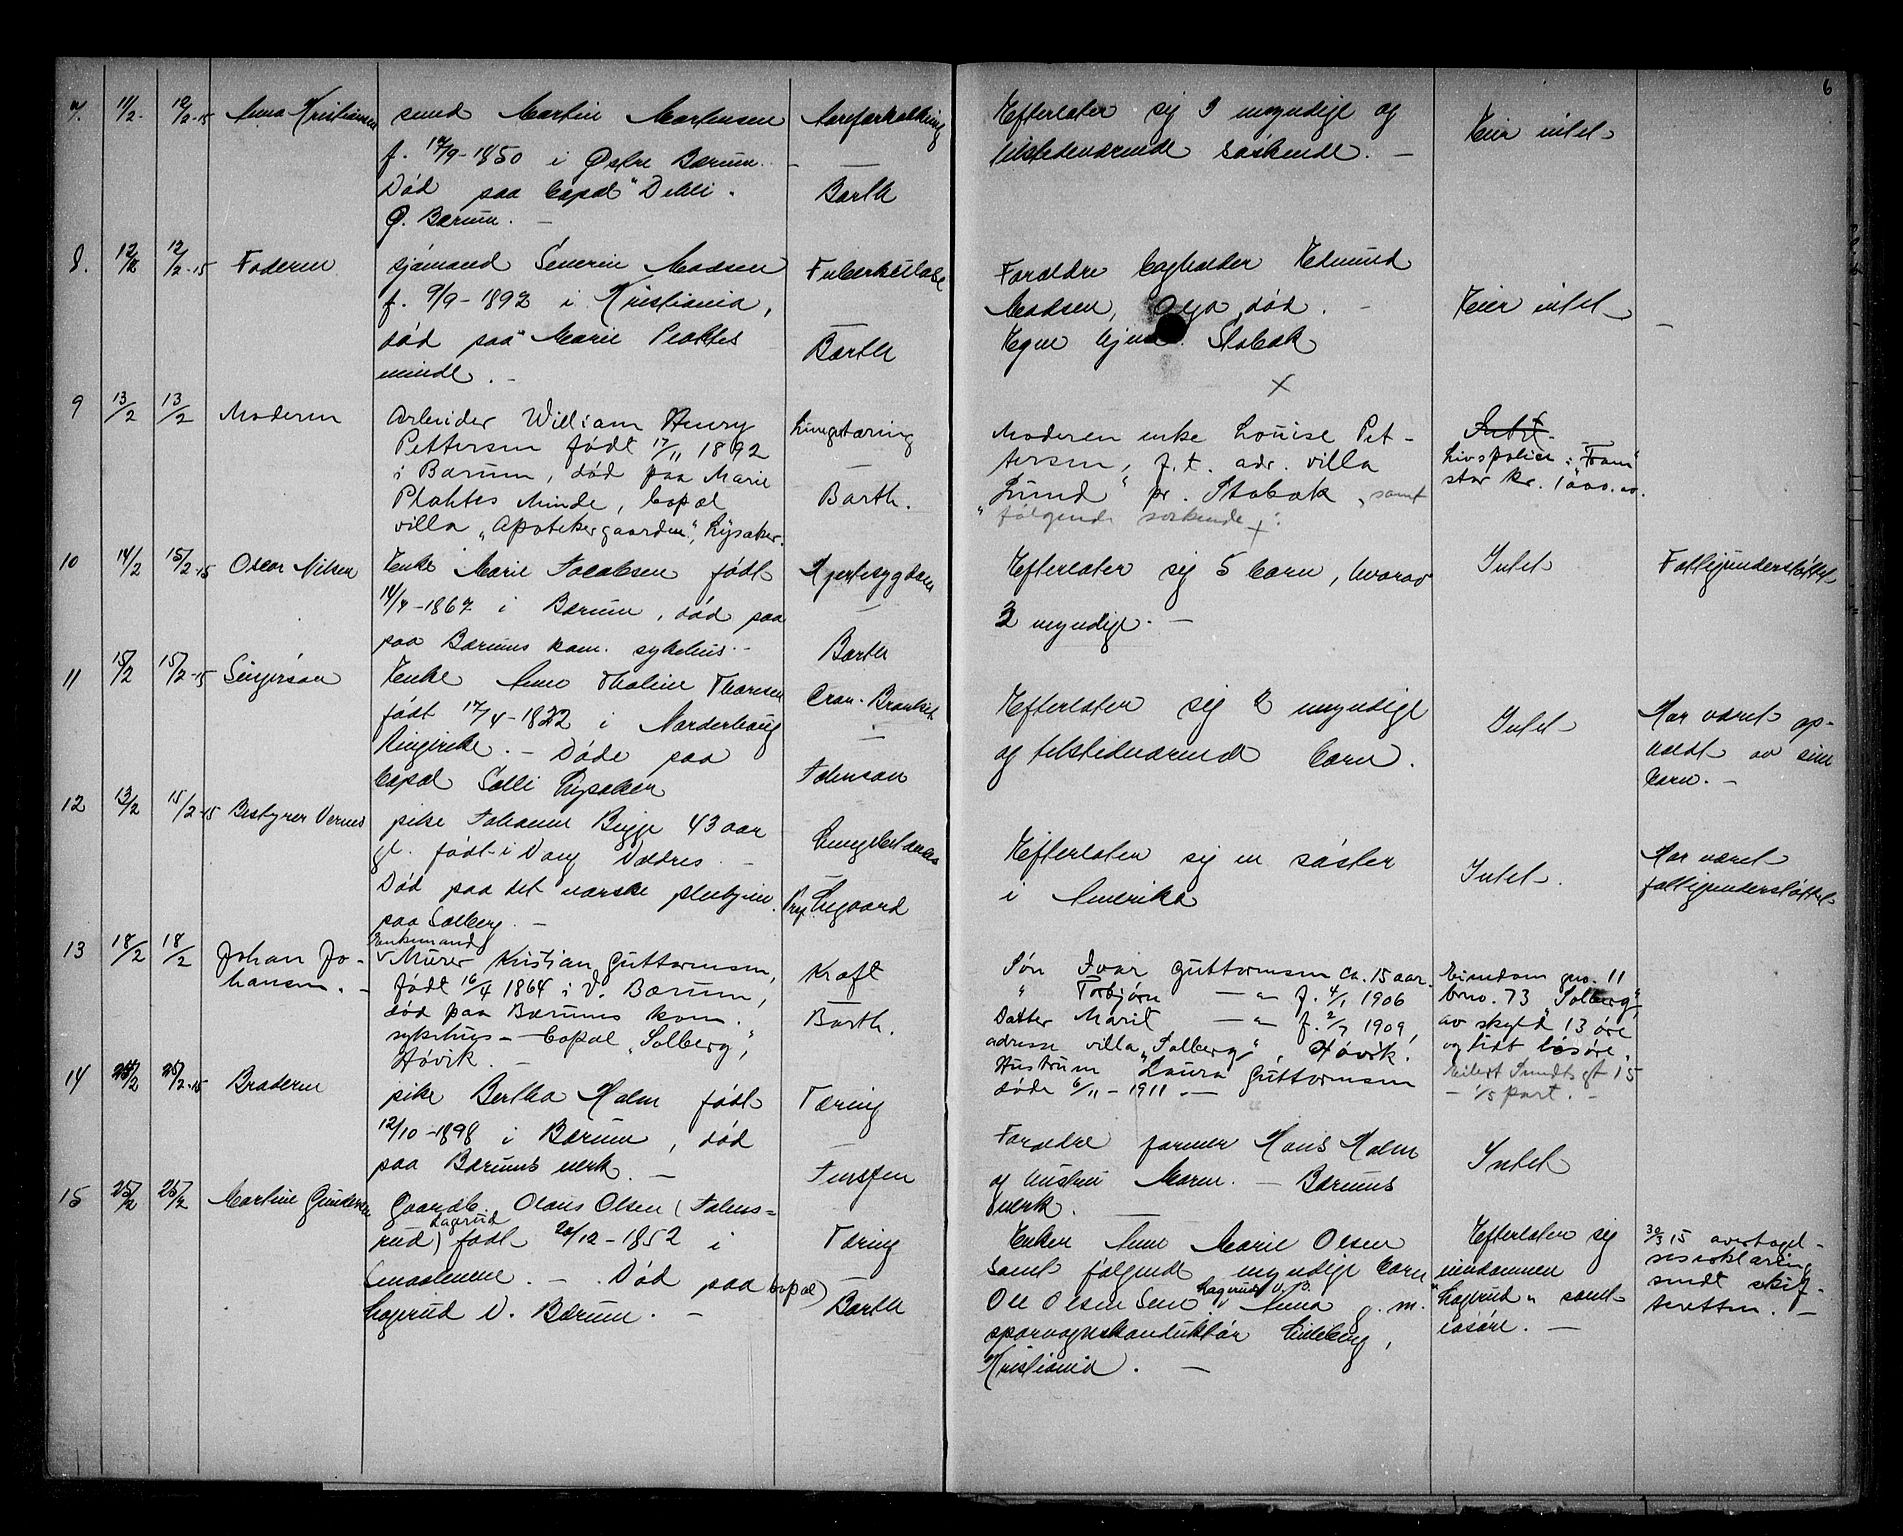 6
7. 11/2. 12/2-15 Anna Kristiansen
smed Martin Martinsen
f. 17/9-1850 i Østre Bærum.
Død paa bopæl Dehli.
Ø. Bærum. —
Aareforkalkning
—
Barth
Efterlater sig 3 myndige og
tilstedeværende søskende. —
Eier intet
8. 12/2 12/2-15 Faderen
sjømand Severin Madsen
f. 9/9-1892 i Kristiania,
død paa Marie Plahtes
minde. —
Tuberkulose
—
Barth
Forældre bogholder Edmund
Madsen, Olga, død. —
Egne hjem Stabæk
Eier intet
—
9 13/2 13/2 Moderen
Arbeider William Henry
Pettersen født 17/11 1892
i Bærum, død paa Marie
Plahtes Minde, bopæl
villa „Apotekergaarden", Lysaker.
Lungetæring
—
Barth.
x
Moderen enke Louise Pet-
tersen, f.t. adr. villa
„Lund" pr. Stabæk, samt
følgende søskende + :
Intet.
Livspolice i „Fram"
stor kr. 1000.00.
10 14/2 15/2-15 Oscar Nilsen
Enke Marie Jacobsen født
14/4-1867 i Bærum, død paa
paa Bærums kom. sykehus. —
Hjertesygdom
—
Barth
Efterlater sig 5 barn, hvorav
3 myndige. —
Intet
Fattigunderstøttet
11 15/2 15/2-15
Enke Anne Tholine Thoresen
født 17/4-1822 i Norderhoug
Ringerike. — Døde paa
bopæl Solli Lysaker
Cron. Bronkit
—
Johnson
Efterlater sig 2 myndige
og tilstedeværende barn.
Intet
Har været op-
holdt av sine
barn. —
12 13/2 15/2-15 Bestyrer Vernes
pike Johanne Bigge 43 aar
gl. født i Vang Valdres. —
Død paa det norske pleiehjem
paa Solberg. —
Lungebetændelse
Prg. Lugaard
Efterlater sig en søster
i Amerika
Intet.
Har været
fattigunderstøttet
13 18/2 18/2 Johan Jo-
hansen. —
Enkemand
v Murer Kristian Guttormsen,
født 16/4 1864 i V. Bærum,
død paa Bærums kom.
sykehus — bopæl „Solberg",
Høvik. —
Kræft
—
Barth.
Søn Ivar Guttormsen ca. 15 aar.
" Torbjørn — " — f. 4/1 1906
Datter Marit — " — f. 2/7 1909,
adresse villa „Solberg", Høvik.
Hustrum Laura Guttormsen
døde 6/11-1911. —
Eiendom gno. 11
brno. 73 „Solberg",
av skyld 13 øre
og lidt løsøre.
Eilert Sundts gt 15
— 1/5 part. —
14 25/2 25/2-15 Broderen
pike Bertha Holm født
12/10-1898 i Bærum, død
paa Bærums verk. —
Tæring
—
Forældre former Hans Holm
og hustru Maren. — Bærums
Verk.
Intet
15 25/2 25/2 Martine Gundersen
Gaardb. Olaus Olsen (Johns=
rud) Lagerud født 20/12-1852 i
Smaalenene. — Død paa bopæl)
Lagerud V. Bærum. —
Tæring
—
Barth
Enken Anne Marie Olsen
samt følgende myndige barn
Ole Olsen Sem, Lagerud V. B. Anna g. m.
sporvognskonduktør Lindberg,
Kristiania. —
Efterlater sig
eiendommen
„Lagerud" samt
løsøre. —
30/3 15 overtagel-
seserklæring
sendt skif-
teretten. —